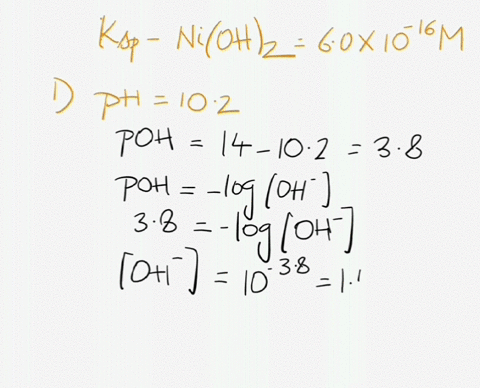 Ksp - Ni(OH)₂ = 6.0 × 10⁻¹⁶ M
1) pH = 10.2
pOH = 14 - 10.2 = 3.8
pOH = -log[OH⁻]
3.8 = -log[OH⁻]
[OH⁻] = 10⁻³·⁸ = 1.1